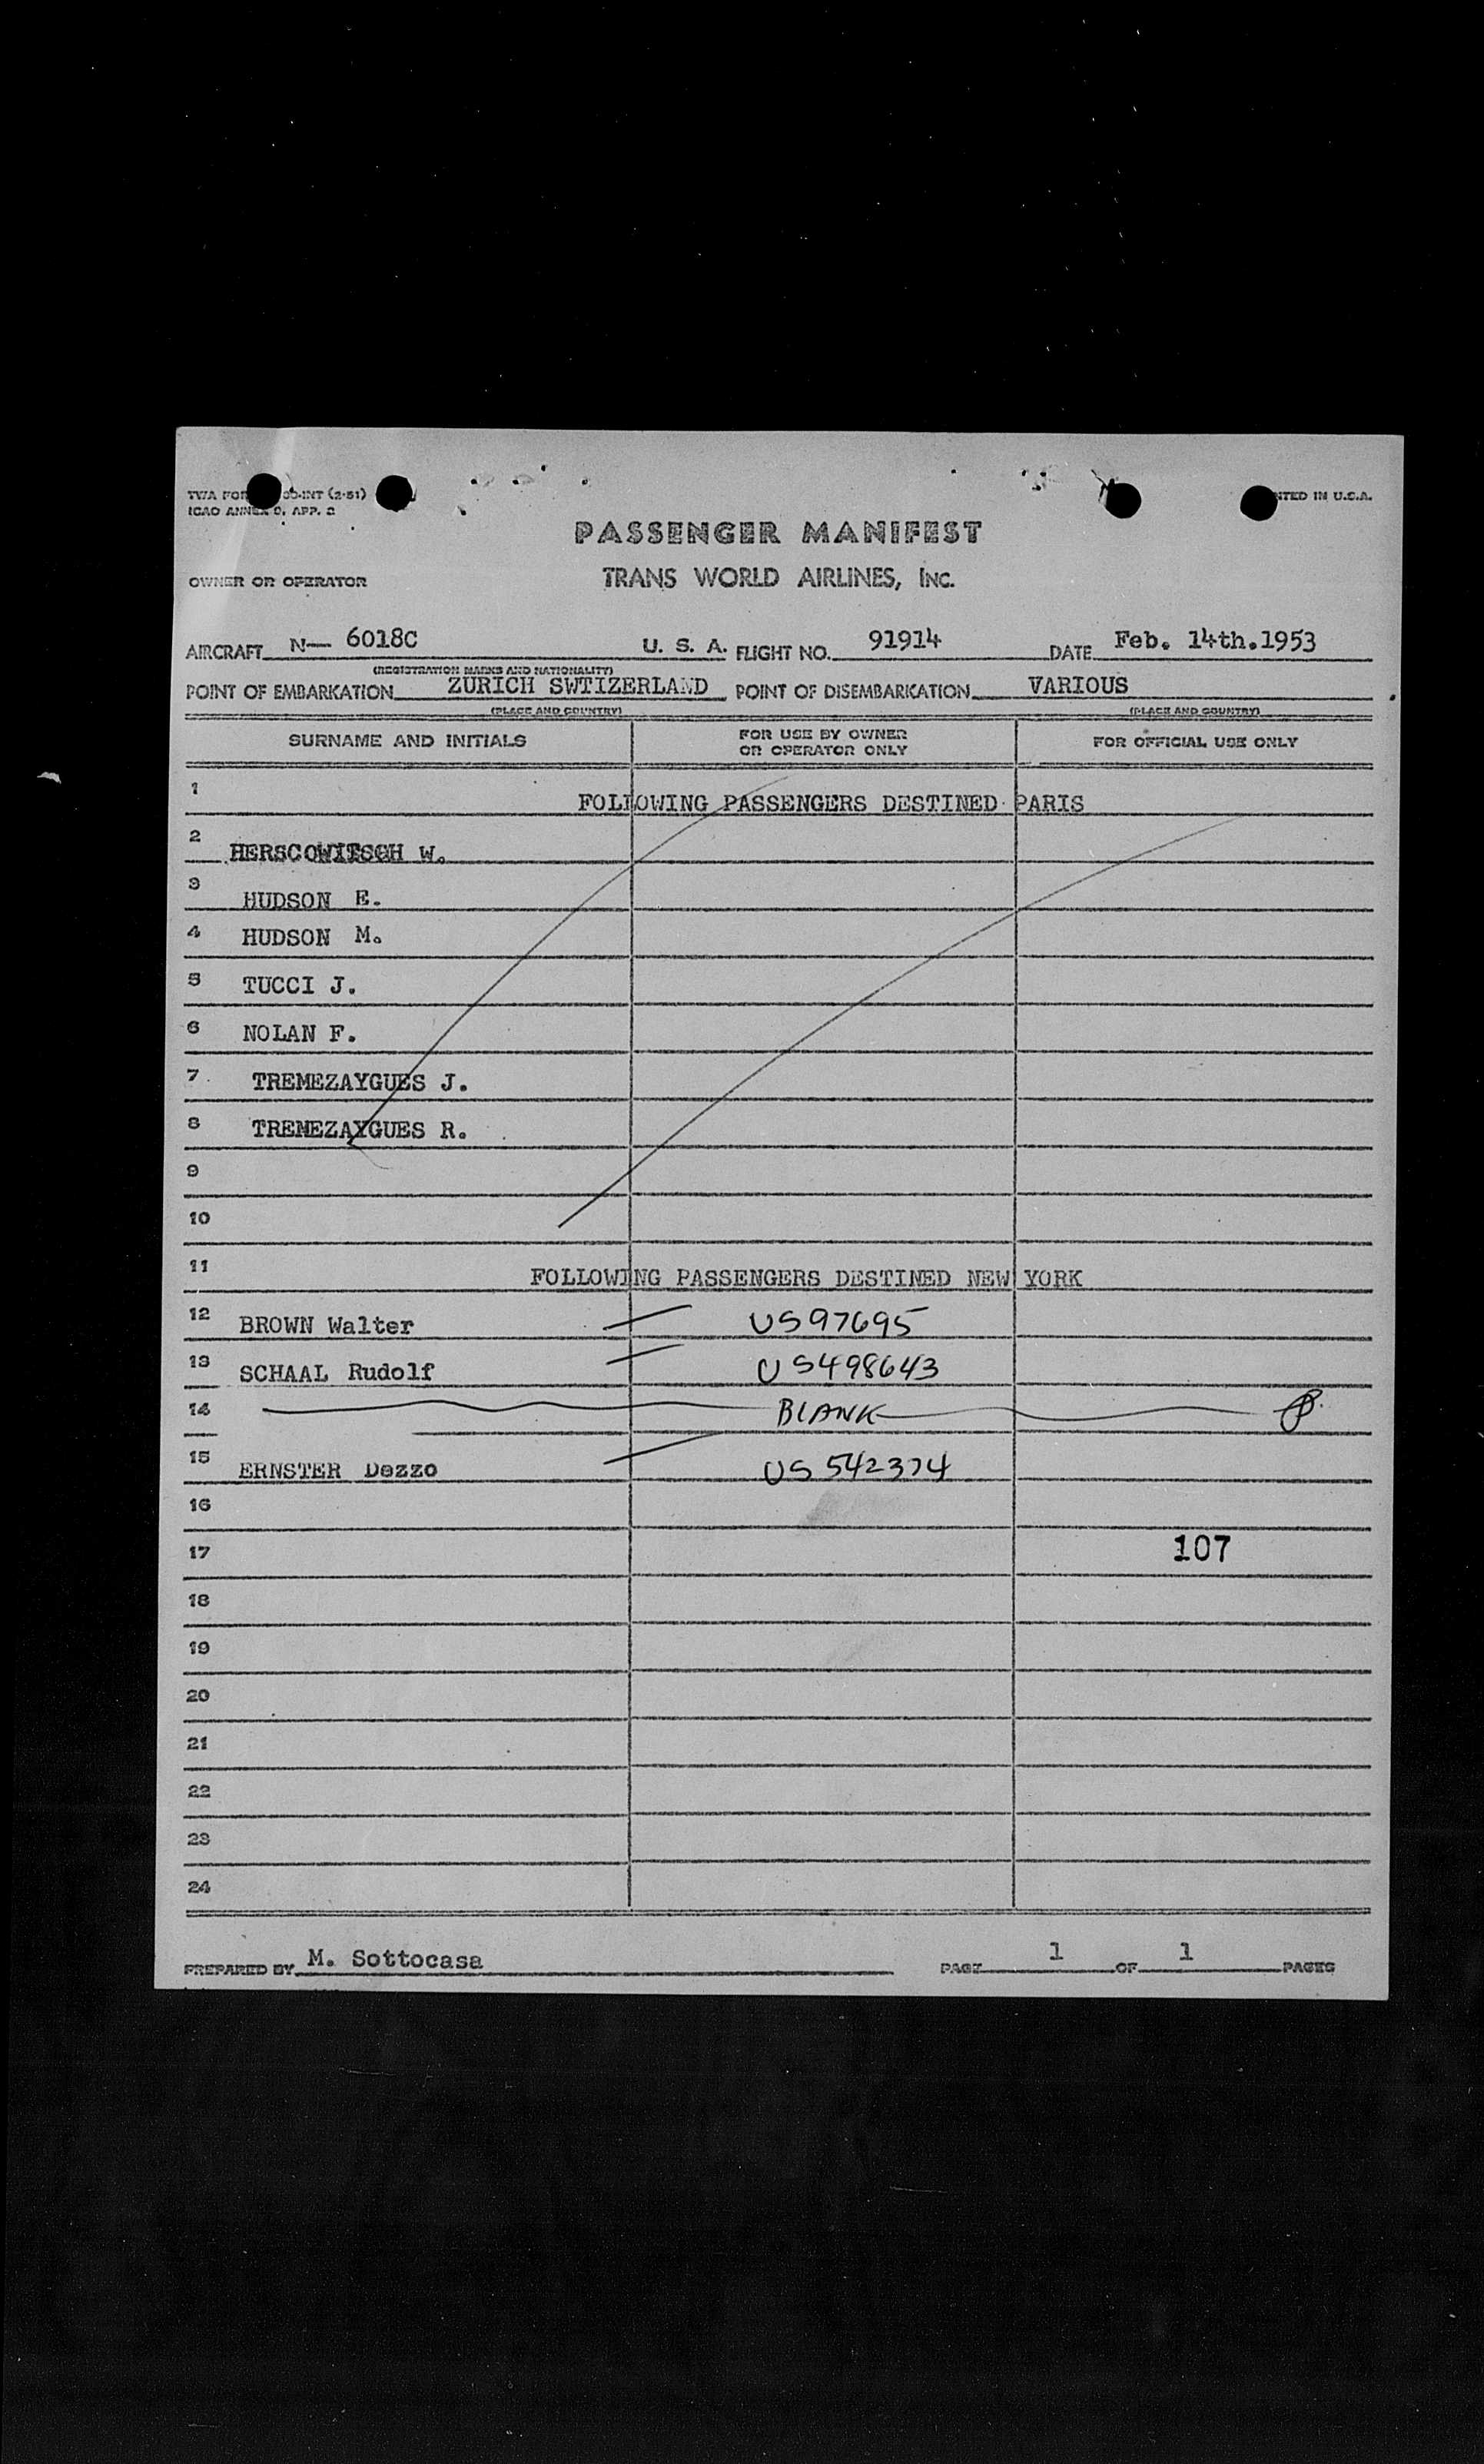 TWA FOR 00-INT (2-51)
NTED IN U.S.A.
ICAO ANNEX 9, APP. 2
PASSENGER MANIFEST
OWNER OR OPERATOR TRANS WORLD AIRLINES, INC.
AIRCRAFT N— 6018C U. S. A. FLIGHT NO. 91914 DATE Feb. 14th.1953
(REGISTRATION MARKS AND NATIONALITY)
POINT OF EMBARKATION ZURICH SWTIZERLAND POINT OF DISEMBARKATION VARIOUS
(PLACE AND COUNTRY) (PLACE AND COUNTRY)
SURNAME AND INITIALS FOR USE BY OWNER OR OPERATOR ONLY FOR OFFICIAL USE ONLY
1 FOLLOWING PASSENGERS DESTINED PARIS
2 HERSCOWITSCH W.
3 HUDSON E.
4 HUDSON M.
5 TUCCI J.
6 NOLAN F.
7 TREMEZAYGUES J.
8 TREMEZAYGUES R.
9
10
11 FOLLOWING PASSENGERS DESTINED NEW YORK
12 BROWN Walter US97695
13 SCHAAL Rudolf US498643
14 BLANK
15 ERNSTER Dezzo US 542374
16
17 107
18
19
20
21
22
23
24
PREPARED BY M. Sottocasa PAGE 1 OF 1 PAGES